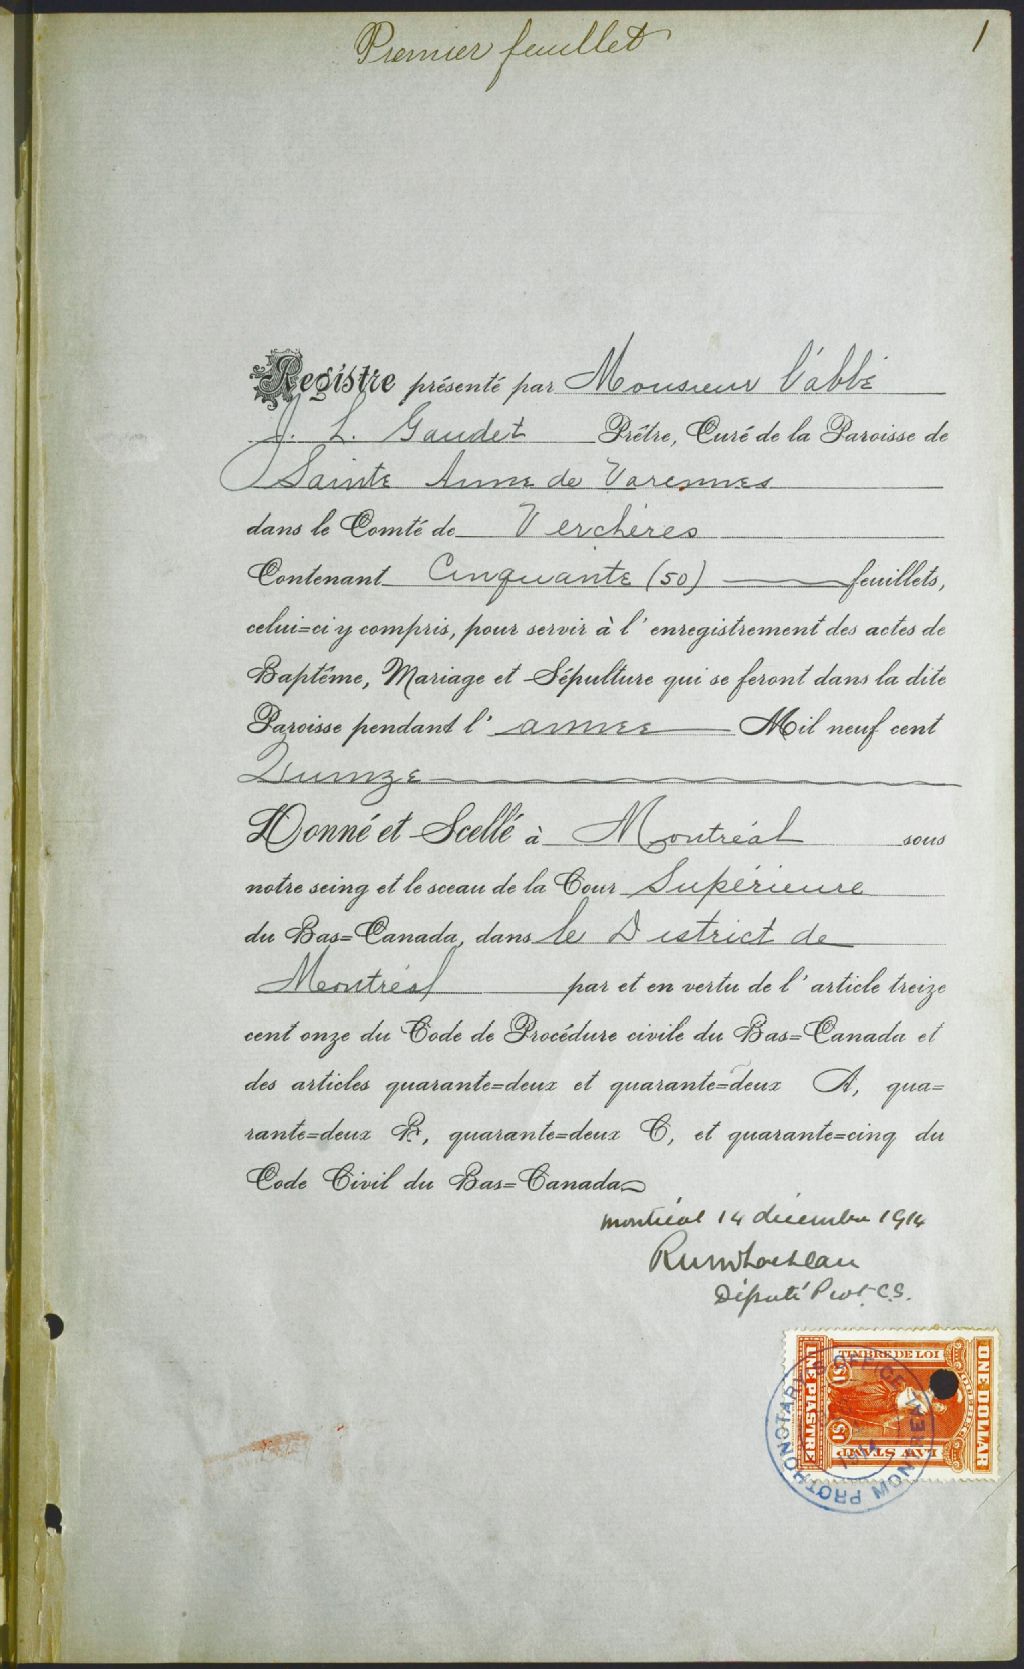 Premier feuillet
1
Registre présenté par Monsieur l'abbé
J. L. Gaudet Prêtre, Curé de la Paroisse de
Sainte Anne de Varennes
dans le Comté de Verchères
Contenant Cinquante (50) feuillets,
celui=ci y compris, pour servir à l'enregistrement des actes de
Baptême, Mariage et Sépulture qui se feront dans la dite
Paroisse pendant l'année Mil neuf cent
Quinze
Donné et Scellé à Montréal sous
notre seing et le sceau de la Cour Supérieure
du Bas=Canada, dans le District de
Montréal par et en vertu de l'article treize
cent onze du Code de Procédure civile du Bas=Canada et
des articles quarante=deux et quarante=deux A, qua=
rante=deux B, quarante=deux C, et quarante=cinq du
Code Civil du Bas=Canada
Montréal 14 décembre 1914
Député Prot. C.S.
TIMBRE DE LOI
ONE DOLLAR
UNE PIASTRE
$1
$1
LAW STAMP
PROTHONOTARY'S OFFICE MONTREAL
1914